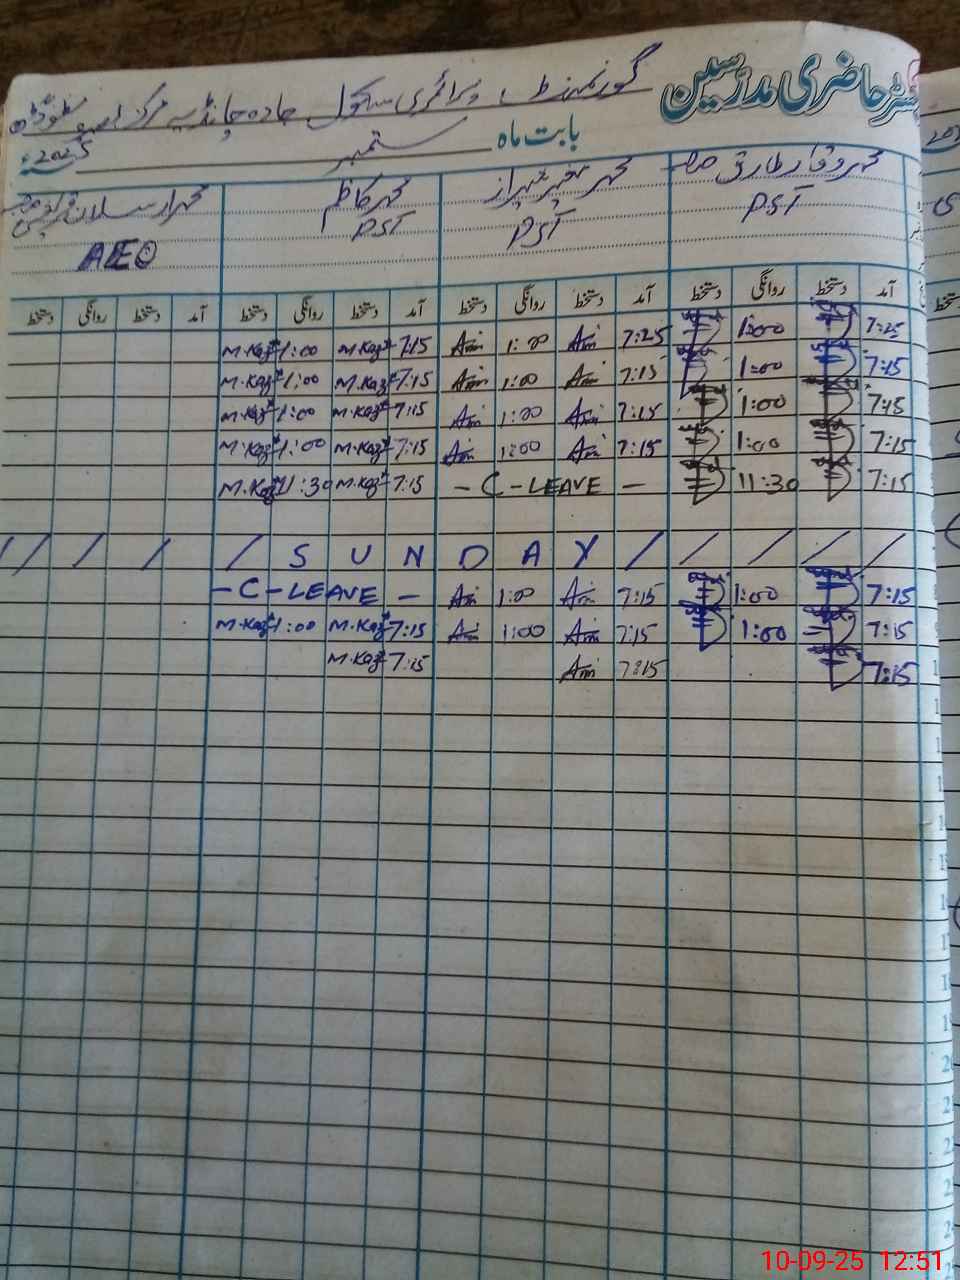 حاضری مدرسین
گورنمنٹ پرائمری سکول جادہ چانڈیہ مرکز
بابت ماہ ستمبر 2025
محمد وقار طارق محمد کاظم محمد ارسلان
PST PST PST AEO
آمد دستخط روانگی دستخط آمد دستخط روانگی دستخط آمد دستخط روانگی دستخط آمد دستخط روانگی دستخط
7:25 1:00 7:25 Am 1:00 Am 7:15 M.Kaz 1:00 M.Kaz
7:15 1:00 7:15 Am 1:00 Am 7:15 M.Kaz 1:00 M.Kaz
7:15 1:00 7:15 Am 1:00 Am 7:15 M.Kaz 1:00 M.Kaz
7:15 1:00 7:15 Am 1:00 Am 7:15 M.Kaz 1:00 M.Kaz
7:15 11:30 - C - LEAVE - 7:15 M.Kaz 11:30 M.Kaz
/ / / / S U N D A Y / / / / /
7:15 1:00 7:15 Am 1:00 Am - C - LEAVE -
7:15 1:00 7:15 Am 1:00 Am 7:15 M.Kaz 1:00 M.Kaz
7:15 7:15 Am 7:15 M.Kaz
10-09-25 12:51